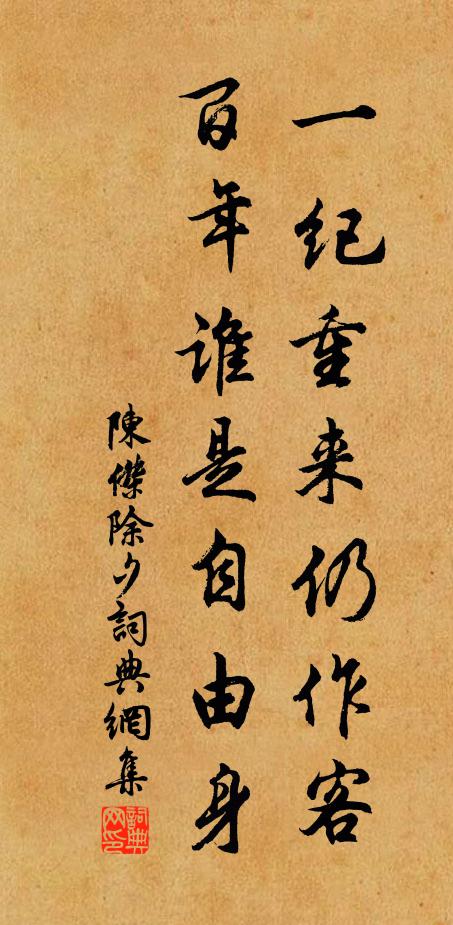 一纪重来仍作客
百年谁是自由身
陳傑除夕詞典網集
詞典网印